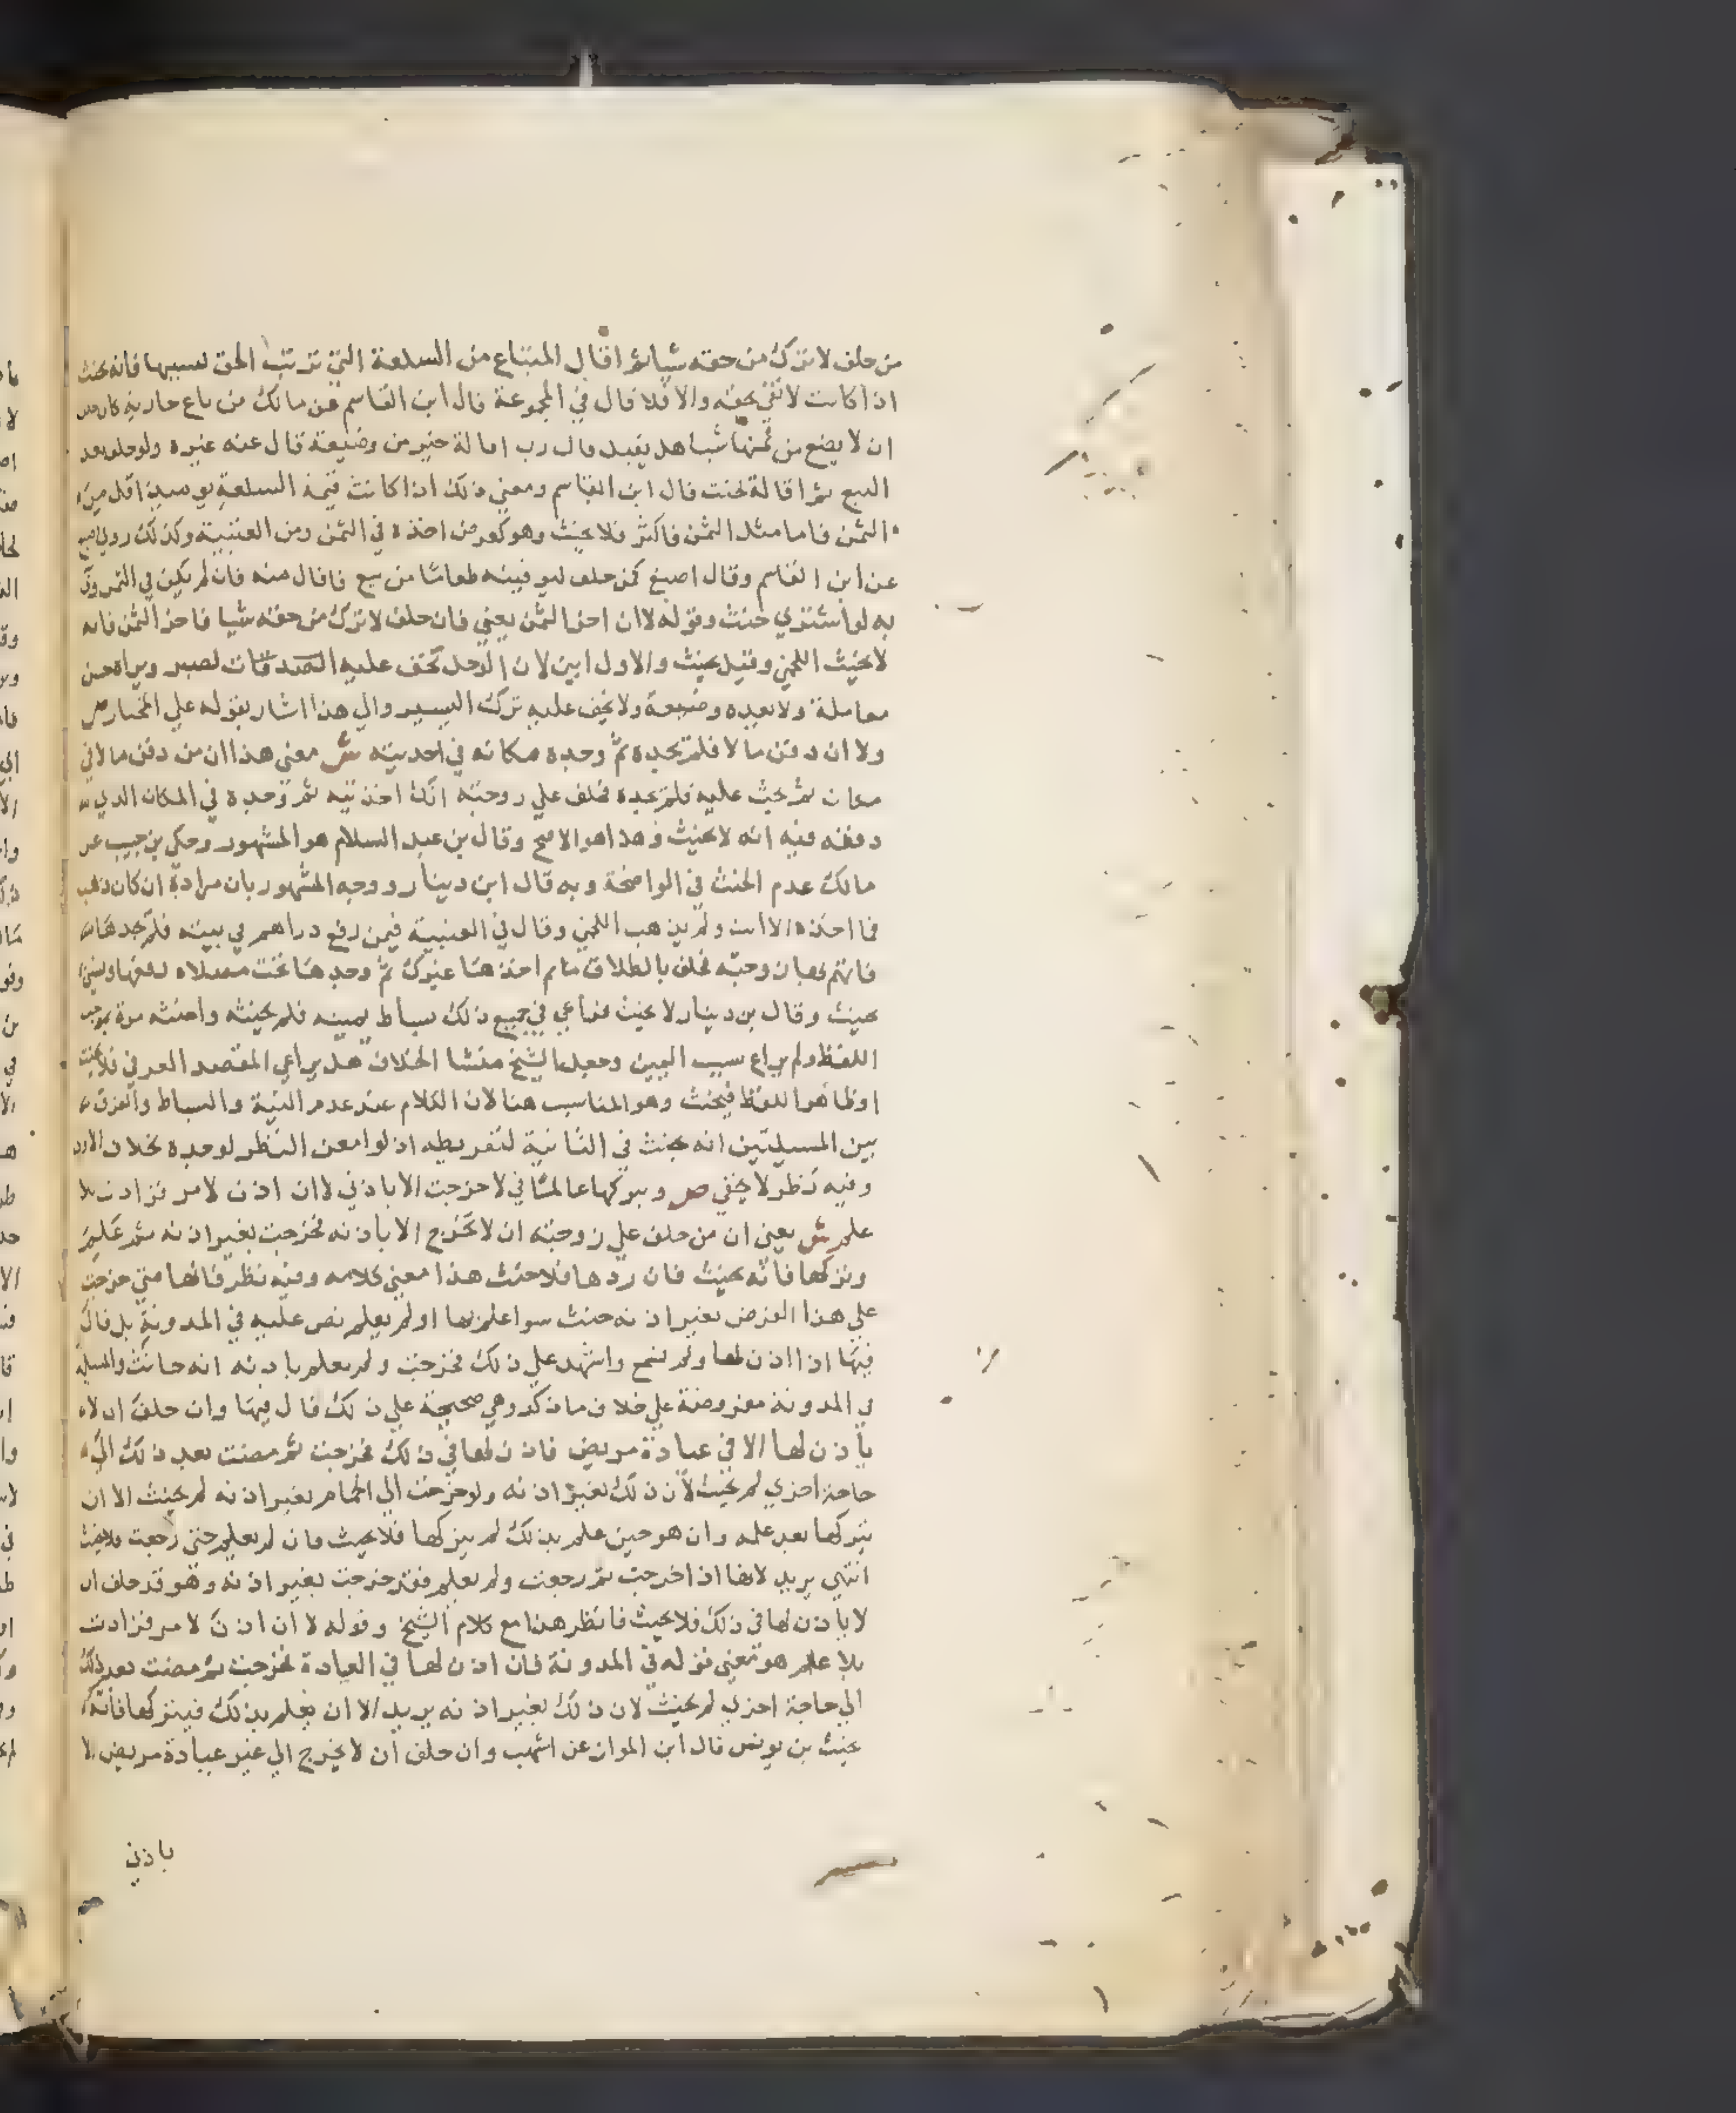 من حلف لا ترك من حقه شيا ثم اقال المبتاع من السلعة التي ترتب الحق لسببها فانه يحنث
اذا كانت لا تفي بحقه والا فلا قال في المجموعة قال ابن القاسم عن مالك من باع جارية كان
ان لا يضع من ثمنها شيا هل يقيل قال رب اقالة خير من وضيعة قال عنه غيره ولو حلف بعد
البيع ثم اقاله لحنث قال ابن القاسم ومعني ذلك اذا كانت قيمة السلعة يوميذ اقل من
الثمن فاما مثل الثمن فاكثر فلا يحنث وهو كعرض اخذه في الثمن ومن العتبية وكذلك روي
عن ابن القاسم وقال اصبغ كمن حلف ليوفينه طعاما من بيع فاقال منه فان لم يكن في الثمن
به لو اشتري حنث وقوله لا ان اخر الثمن يعني فان حلف لا ترك من حقه شيا فاخر الثمن فانه
لا يحنث اللخمي وقيل يحنث والاول ابين لان الرجل تخف عليه الصدقات لصبر ويراه حسن
معاملة ولا يعده وضيعة ولا يخف عليه ترك اليسير والي هذا اشار بقوله علي المختار ص
ولا ان دفن مالا فلم يجده ثم وجده مكانه في اخذتيه ش معني هذا ان من دفن مالا في
مكان ثم بحث عليه فلم يجده فحلف علي زوجته انك اخذتيه ثم وجده في المكان الذي
دفنه فيه انه لا يحنث وهذا هو الاصح وقال بن عبد السلام هو المشهور وحكي بن حبيب عن
مالك عدم الحنث في الواضحة وبه قال ابن دينار ووجه المشهور بان مراده ان كان ذهب
فما اخذه الا انت ولم يذهب اللخمي وقال في العتبية فيمن رفع دراهم في بيته فلم يجدها
فاتهم بها زوجته فحلف بالطلاق ما اخذها غيرك ثم وجدها تحت مصلاه
يحنث وقال بن دينار لا يحنث فراعي في جميع ذلك بساط يمينه فلم يحنثه واحنثه مرة بموجب
اللفظ ولم يراع سبب اليمين وجعل الشيخ منشا الخلاف هل يراعي المقصد العرفي فلا يحنث
او ظاهر اللفظ فيحنث وهو المناسب هنا لان الكلام عند عدم النية والبساط والفرق
بين المسيلتين انه يحنث في الثانية لتفريطه اذ لو امعن النظر لوجده بخلاف الاولي
وفيه نظر لا يخفي ص وبتركها عالما في لا خرجت الا باذني لا ان اذن لامر فزادت بلا
علم ش يعني ان من حلف علي زوجته ان لا تخرج الا باذنه فخرجت بغير اذنه ثم علم
وتركها فانه يحنث فان ردها فلا حنث هذا معني كلامه وفيه نظر فانها متي خرجت
علي هذا الفرض بغير اذنه حنث سوا علم بها او لم يعلم نص عليه في المدونة بل قال
فيها اذا اذن لها ولم تسمع واشهد علي ذلك فخرجت ولم تعلم باذنه انه حانث والمسيلة
في المدونة مفروضة علي خلاف ما ذكر وهي صحيحة علي ذلك قال فيها وان حلف ان لا
ياذن لها الا في عيادة مريض فاذن لها في ذلك فخرجت ثم مضت بعد ذلك الي
حاجة اخري لم يحنث لان ذلك بغير اذنه ولو خرجت الي الحمام بغير اذنه لم يحنث الا ان
يتركها بعد علمه وان هو حين علم بذلك لم يتركها فلا يحنث فان لم يعلم حتي رجعت فلا يحنث
انتهي يريد لانها اذا خرجت ثم رجعت ولم يعلم فقد خرجت بغير اذنه وهو قد حلف ان
لا ياذن لها في ذلك فلا يحنث فانظر هذا مع كلام الشيخ وقوله لا ان اذن لامر فزادت
بلا علم هو معني قوله في المدونة فان اذن لها في العيادة فخرجت ثم مضت بعد ذلك
الي حاجة اخري لم يحنث لان ذلك بغير اذنه يريد الا ان يعلم بذلك فيتركها فانه
يحنث بن يونس قال ابن المواز عن اشهب وان حلف ان لا تخرج الي غير عيادة مريض الا
باذني